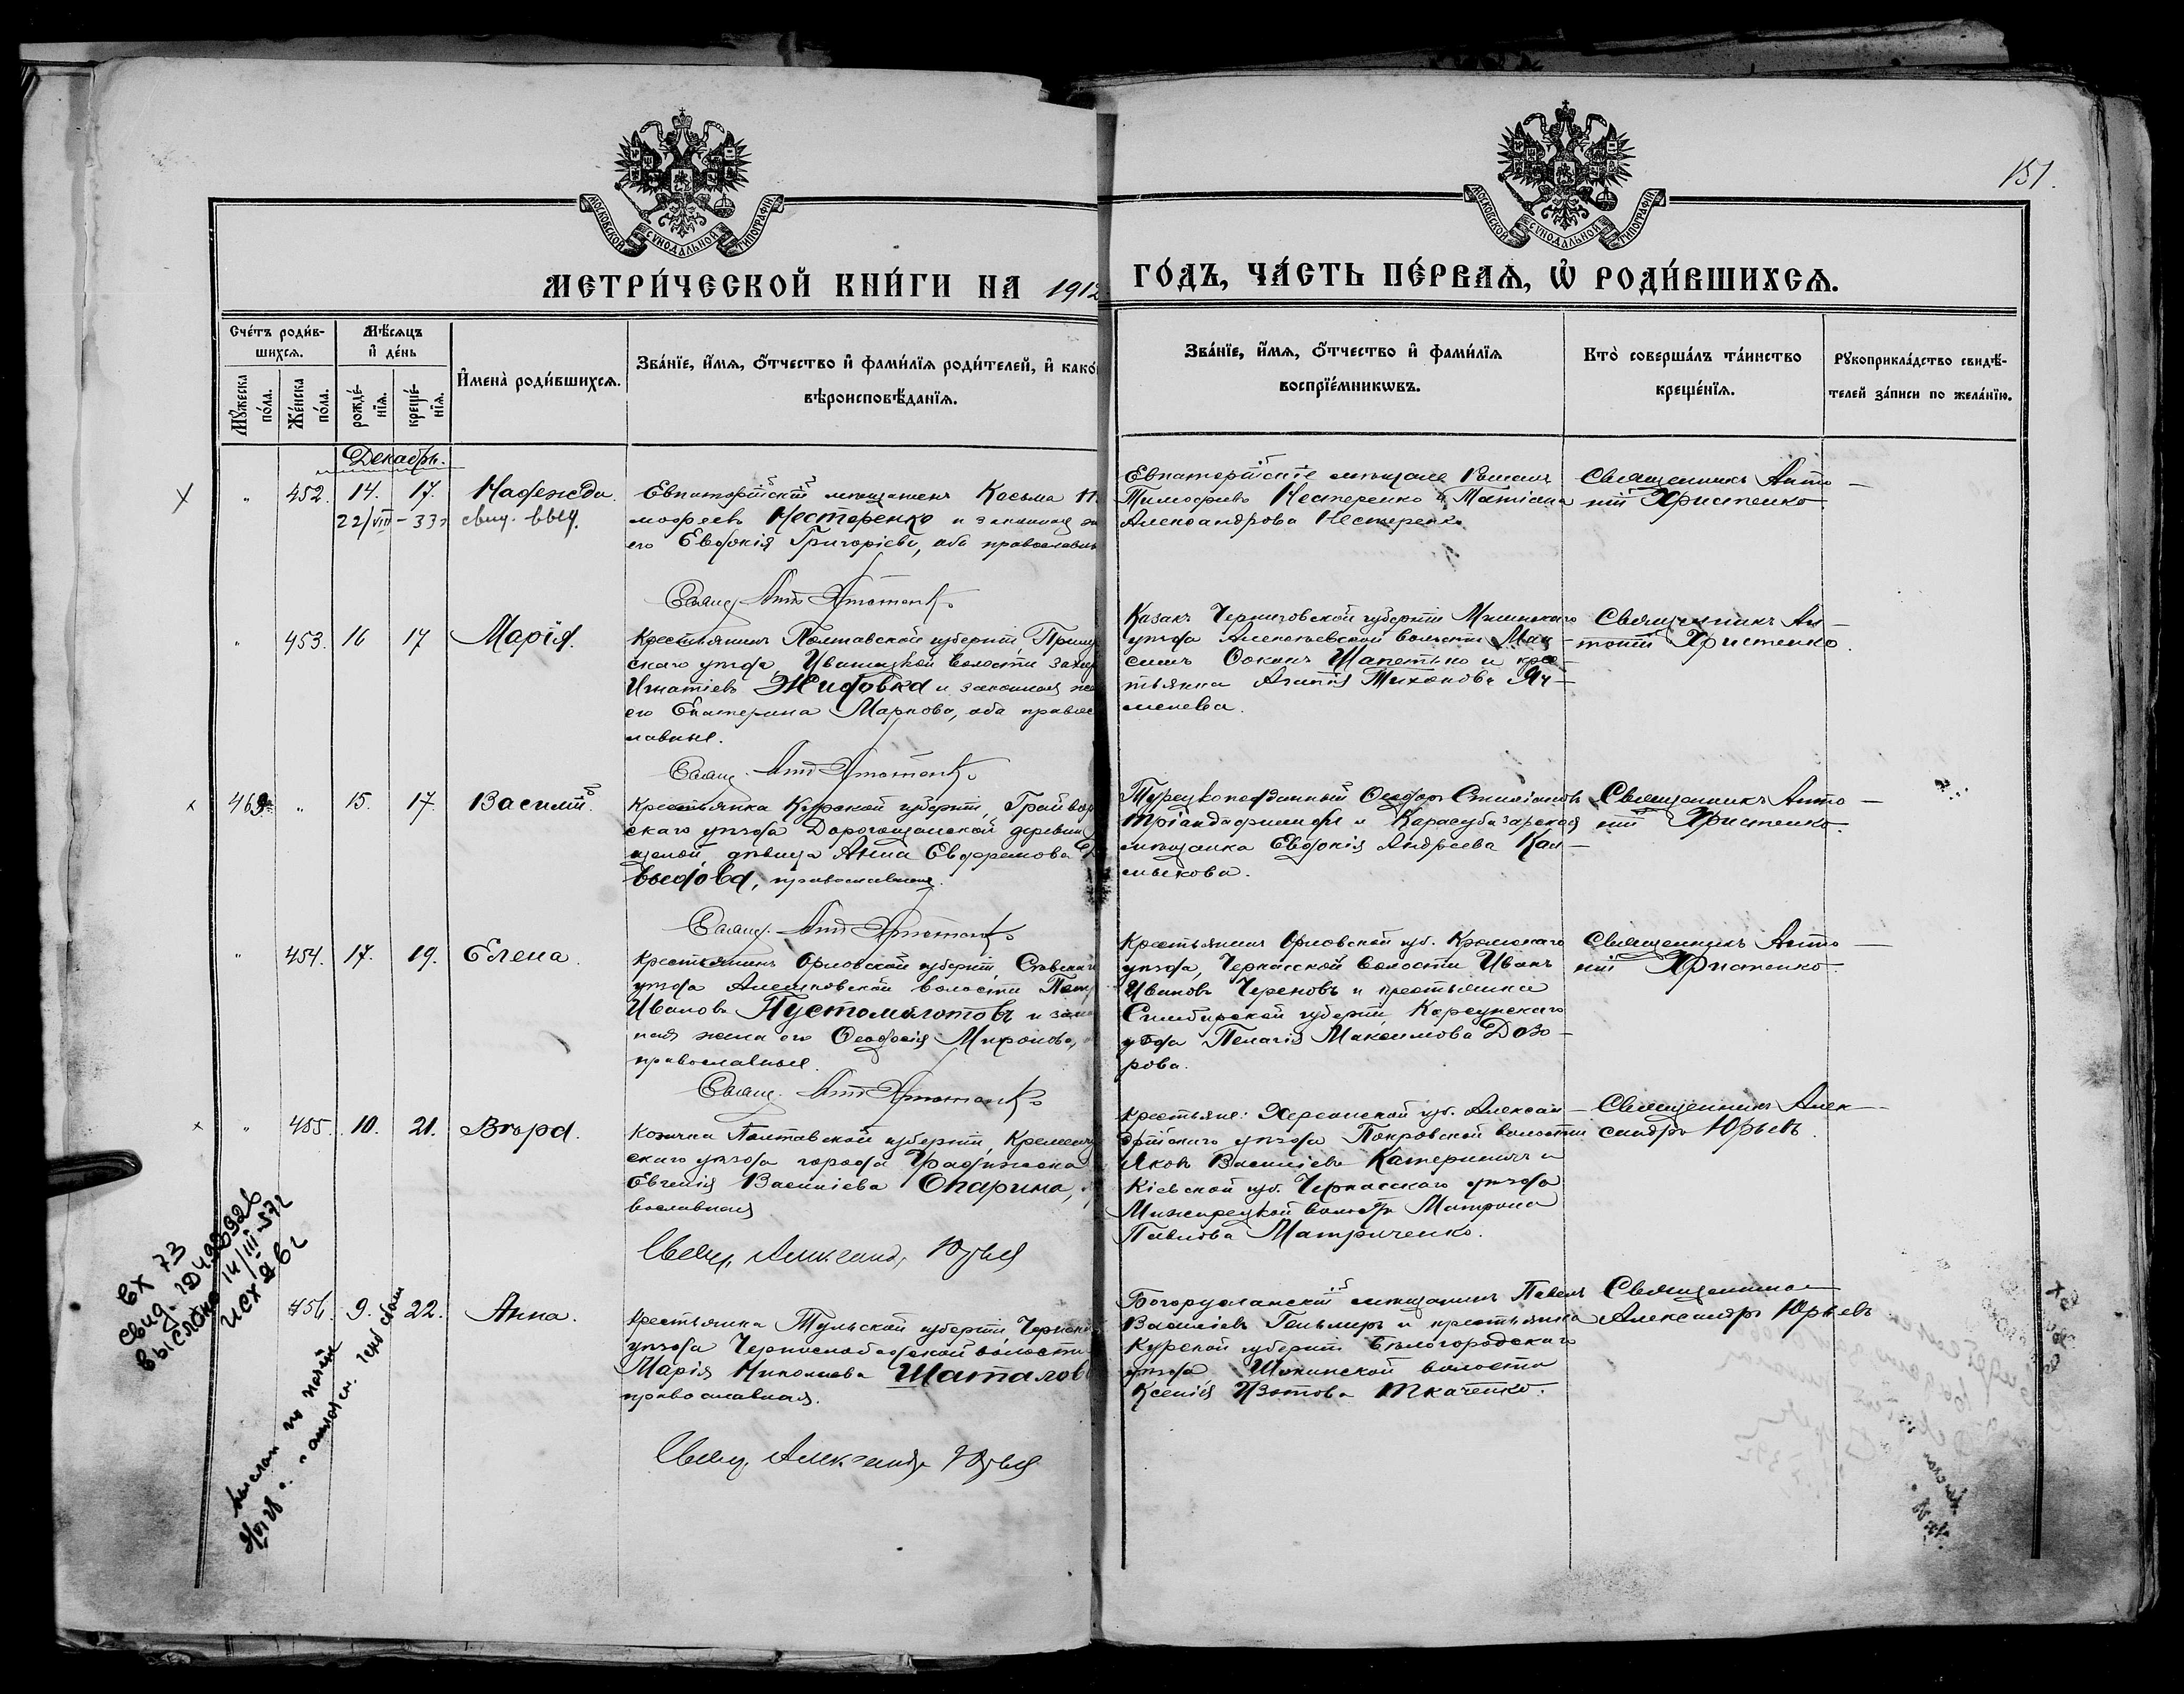 151.
МОСКОВСКОЙ СѴНОДАЛЬНОЙ ТИПОГРАФІИ
МОСКОВСКОЙ СѴНОДАЛЬНОЙ ТИПОГРАФІИ
МЕТРИ́ЧЕСКОЙ КНИ́ГИ НА 1912
ГО́ДЪ, ЧА́СТЬ ПЕ́РВАѦ, Ѡ҆ РОДИ́ВШИХСѦ.
Сче́тъ роди́в-
шихсѧ.
Мѣ́сѧцъ
и҆ де́нь
Мꙋ́жеска
по́ла.
Же́нска
по́ла.
рожде́-
нїѧ.
креще́-
нїѧ.
И҆мена̀ роди́вшихсѧ.
Зва́нїе, и҆́мѧ, ѻ҆́тчество и҆ фами́лїѧ роди́телей, и҆ како́
вѣроисповѣ́данїѧ.
Зва́нїе, и҆́мѧ, ѻ҆́тчество и҆ фами́лїѧ
воспрїе́мникѡвъ.
Кто̀ соверша́лъ та́инство
креще́нїѧ.
Рꙋкоприкла́дство свидѣ́-
телей за́писи по жела́нїю.
Декабрь.
" 452. 14. 17. Надежда.
22/VIII - 33г свид. выд.
Евпаторійскій мѣщанинъ Косьма Ти
мофеевъ Нестеренко и законная же
его Евдокія Григоріева, оба православн
Свящ. Ант Христенко
Евпаторійскіе мѣщане Романъ
Тимофеевъ Нестеренко и Татіана
Александрова Нестеренко
Священникъ Анто-
ній Христенко
" 453. 16 17 Марія.
Крестьянинъ Полтавской губерніи, Прилу
скаго уѣзда, Иваницкой волости Заха
Игнатіевъ Жидовка и законная же
его Екатерина Маркова, оба правос
лавные.
Свящ. Ант Христенко
Казакъ Черниговской губерніи Мглинскаго
уѣзда Алексеевской волости Мак-
симъ Шапетько и кре-
тьянка Агапія Тихонова Яч-
менева.
Священникъ Ан-
тоній Христенко.
463 " 15. 17. Василій.
Крестьянка Курской губерніи, Грайвор
скаго уѣзда Дорогощанской деревни
дѣвица Анна Евфремова
выдова, православная.
Свящ. Ант Христенко
Турецкоподданный Ѳеодоръ Стиліановъ
Тріандафилиди и Карасубазарская
мѣщанка Евдокія Андреева Кал-
мыкова.
Священникъ Анто-
ній Христенко.
" 454. 17. 19. Елена.
Крестьянинъ Орловской губерніи, Сѣвскаго
уѣзда Алешковской волости Петр
Ивановъ Пустомолотовъ и закон
ная жена его Ѳеодосія Миронова,
православные.
Свящ. Ант Христенко
Крестьянинъ Орловской губ. Кромскаго
уѣзда, Черкасской волости Иванъ
Ивановъ Череновъ и крестьянка
Симбирской губерніи, Корсунскаго
уѣзда Пелагія Максимова Дозо-
рова.
Священникъ Анто-
ній Христенко.
" 455. 10. 21. Вѣра.
Козачка Полтавской губерніи, Кременчу
скаго уѣзда города Градижска
Евгенія Василіева Опарина,
вославная
Свящ. Александр Юрьев
Крестьяне: Херсонской губ. Алексан-
дрійскаго уѣзда Покровской волости
Яковъ Василіевъ Катеринич и
Кіевской губ. Черкасскаго уѣзда
Межирецкой волости Матрона
Павлова Матриченко.
Священникъ Алек-
сандръ Юрьевъ.
456 9. 22. Анна.
Крестьянка Тульской губерніи, Чернск
уѣзда Чернослободской волости
Марія Николаева Шаталов
православная.
Свящ. Александр Юрьев
Богорусланскій мѣщанинъ Павелъ
Василіевъ Гельмеръ и крестьянка
Курской губерніи Бѣлогородскаго
уѣзда, Шопинской волости
Ксенія Изотова Ткаченко.
Священникъ
Александръ Юрьевъ
Вх 73
свид.
выслано 14/III-57г
исх
выслан по почте